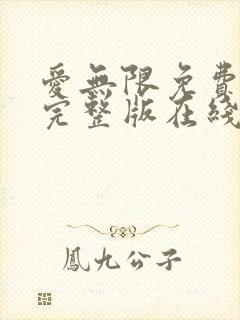 愛無限免費
完整版在綫
鳳九公子